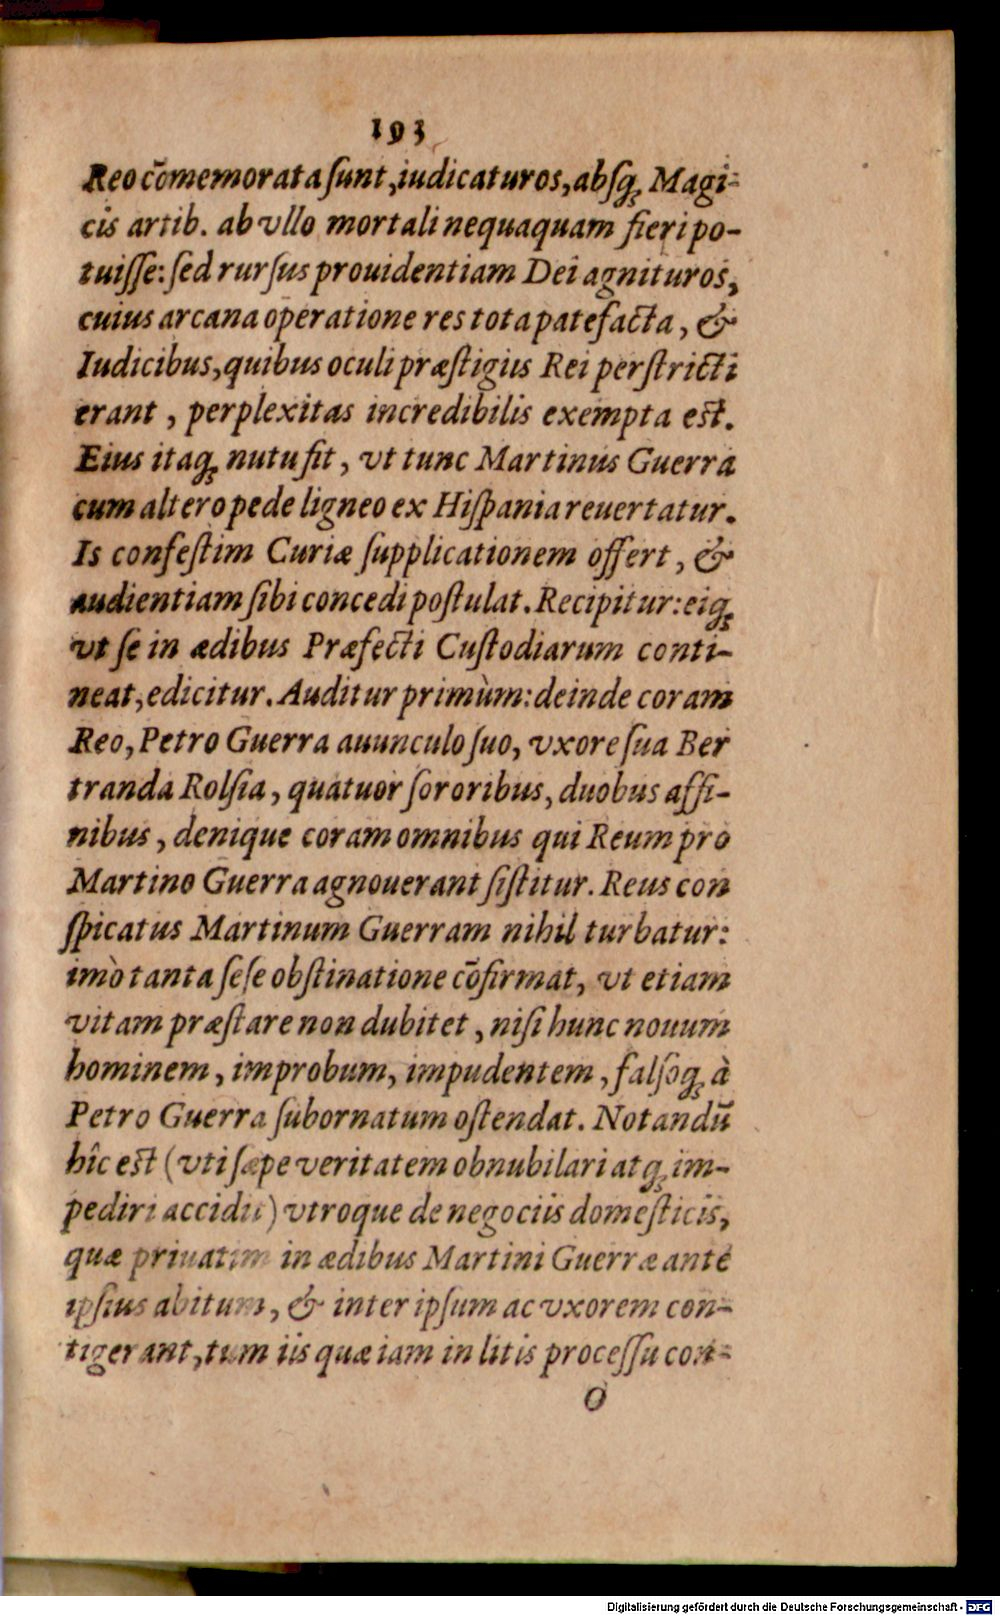 193
Reo cõmemorata ſunt, iudicaturos, abſq; Magi-
cis artib. ab vllo mortali nequaquam fieri po-
tuiſſe: ſed rurſus prouidentiam Dei agnituros,
cuius arcana operatione res tota patefacta, &
Iudicibus, quibus oculi præſtigiis Rei perſtricti
erant, perplexitas incredibilis exempta est.
Eius itaq; nutu fit, vt tunc Martinus Guerra
cum altero pede ligneo ex Hiſpania reuertatur.
Is confeſtim Curiæ ſupplicationem offert, &
audientiam ſibi concedi poſtulat. Recipitur: eiq;
vt ſe in ædibus Præfecti Cuſtodiarum conti-
neat, edicitur. Auditur primùm: deinde coram
Reo, Petro Guerra auunculo ſuo, vxore ſua Ber
tranda Rolſia, quatuor ſororibus, duobus affi-
nibus, denique coram omnibus qui Reum pro
Martino Guerra agnouerant ſiſtitur. Reus con
ſpicatus Martinum Guerram nihil turbatur:
imò tanta ſeſe obſtinatione cõfirmat, vt etiam
vitam præſtare non dubitet, niſi hunc nouum
hominem, improbum, impudentem, falſoq; à
Petro Guerra ſubornatum oſtendat. Notandũ
hîc est (vti ſæpe veritatem obnubilari atq; im-
pediri accidit) vtroque de negociis domeſticis,
quæ priuatim in ædibus Martini Guerræ ante
ipſius abitum, & inter ipſum ac vxorem con-
tigerant, tum iis quæ iam in litis proceſſu con-
O
Digitalisierung gefördert durch die Deutsche Forschungsgemeinschaft - DFG